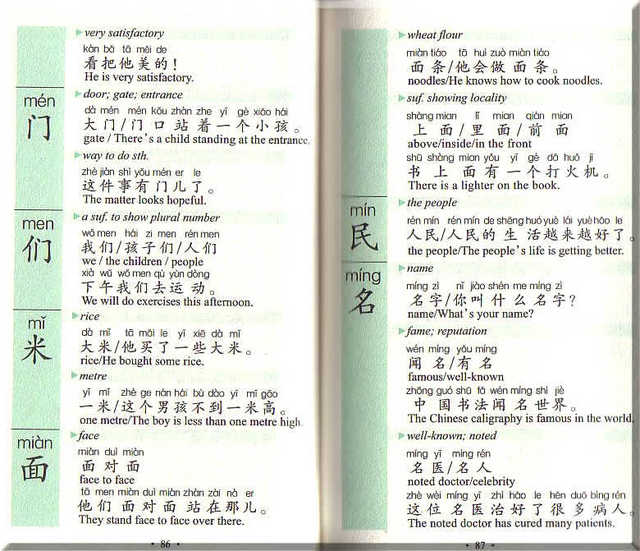 very satisfactory
kàn bǎ tā měi de
看把他美的！
He is very satisfactory.
mén
门
door; gate; entrance
dà mén mén kǒu zhàn zhe yī gè xiǎo hái
大门/门口站着一个小孩。
gate / There's a child standing at the entrance.
way to do sth.
zhè jiàn shì yǒu mén er le
这件事有门儿了。
The matter looks hopeful.
men
们
a suf. to show plural number
wǒ men hái zi men rén men
我们/孩子们/人们
we / the children / people
xià wǔ wǒ men qù yùn dòng
下午我们去运动。
We will do exercises this afternoon.
mǐ
米
rice
dà mǐ tā mǎi le yī xiē dà mǐ
大米/他买了一些大米。
rice/He bought some rice.
metre
yī mǐ zhè ge nán hái bù dào yī mǐ gāo
一米/这个男孩不到一米高。
one metre/The boy is less than one metre high
miàn
面
face
miàn duì miàn
面对面
face to face
tā men miàn duì miàn zhàn zài nà er
他们面对面站在那儿。
They stand face to face over there.
· 86 ·
wheat flour
miàn tiáo tā huì zuò miàn tiáo
面条/他会做面条。
noodles/He knows how to cook noodles.
suf. showing locality
shàng mian lǐ mian qián mian
上面/里面/前面
above/inside/in the front
shū shàng mian yǒu yī gè dǎ huǒ jī
书上面有一个打火机。
There is a lighter on the book.
mín
民
the people
rén mín rén mín de shēng huó yuè lái yuè hǎo le
人民/人民的生活越来越好了。
the people/The people's life is getting better.
míng
名
name
míng zì nǐ jiào shén me míng zì
名字/你叫什么名字？
name/What's your name?
fame; reputation
wén míng yǒu míng
闻名/有名
famous/well-known
zhōng guó shū fǎ wén míng shì jiè
中国书法闻名世界。
The Chinese caligraphy is famous in the world.
well-known; noted
míng yī míng rén
名医/名人
noted doctor/celebrity
zhè wèi míng yī zhì hǎo le hěn duō bìng rén
这位名医治好了很多病人。
The noted doctor has cured many patients.
· 87 ·